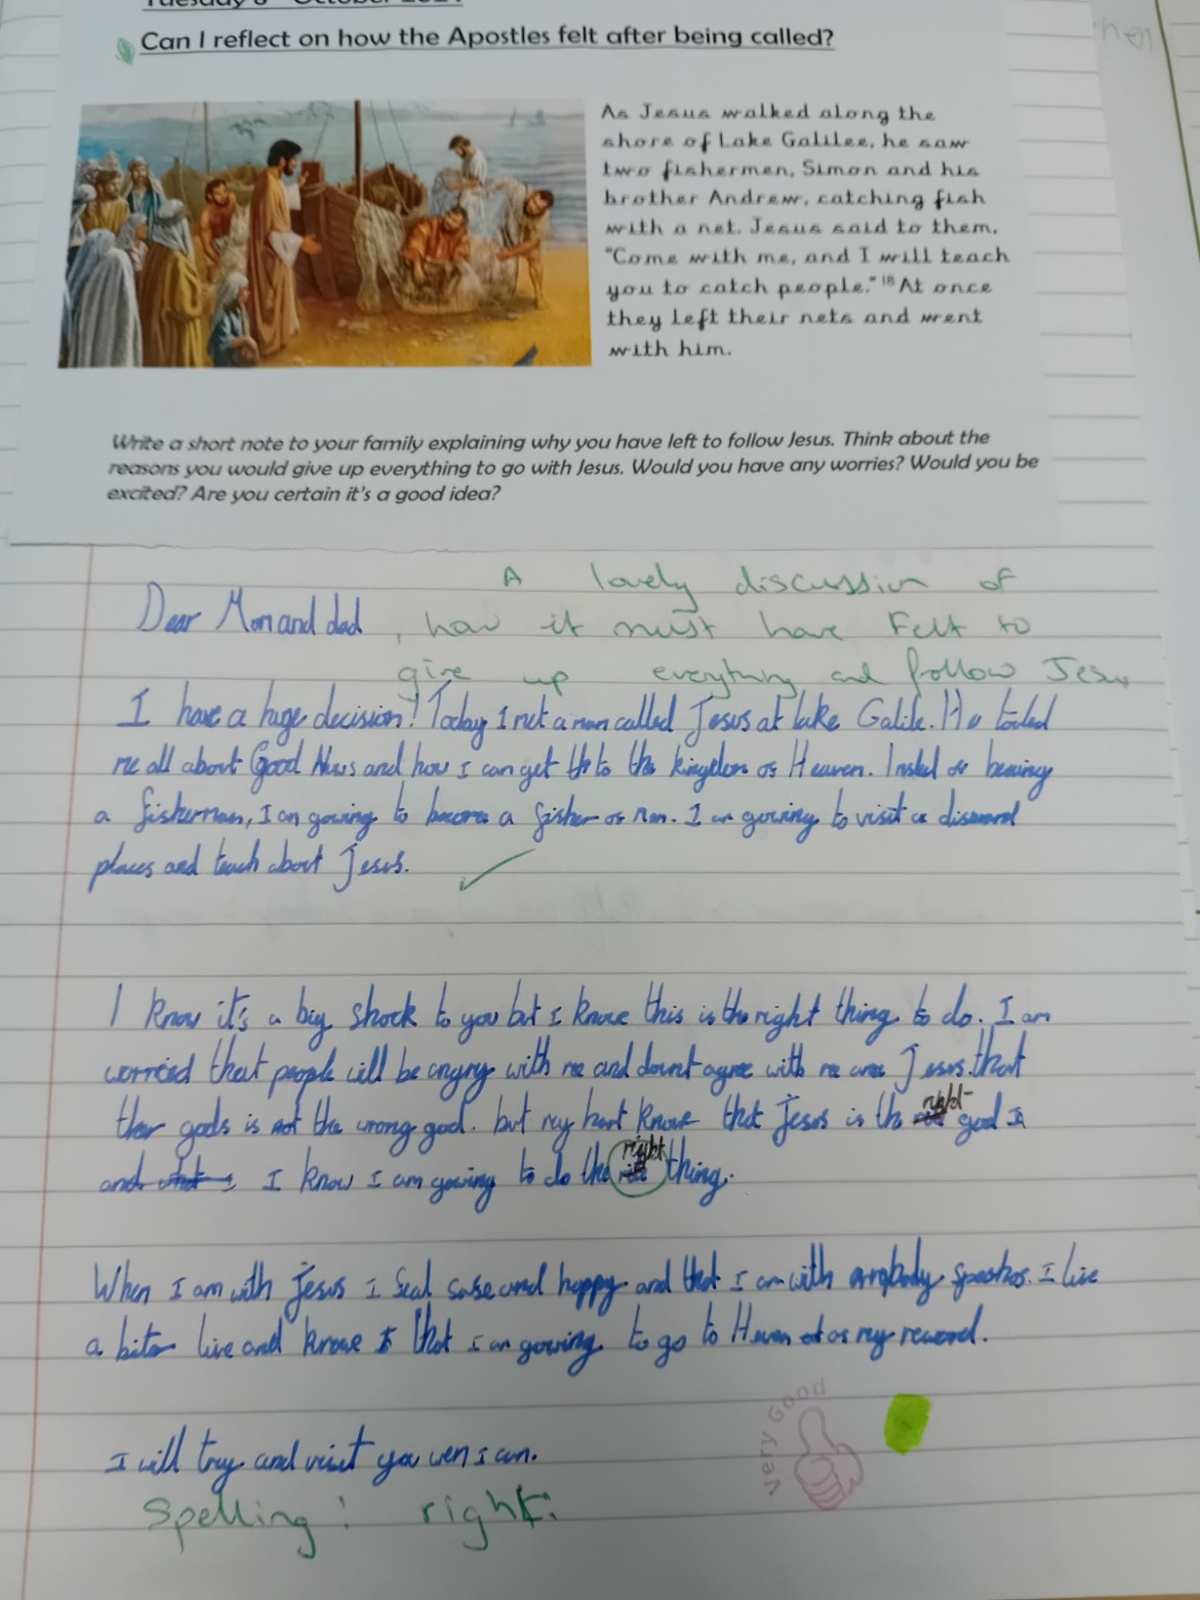 Can I reflect on how the Apostles felt after being called?
As Jesus walked along the
shore of Lake Galilee, he saw
two fishermen, Simon and his
brother Andrew, catching fish
with a net. Jesus said to them,
"Come with me, and I will teach
you to catch people." 18 At once
they left their nets and went
with him.
Write a short note to your family explaining why you have left to follow Jesus. Think about the
reasons you would give up everything to go with Jesus. Would you have any worries? Would you be
excited? Are you certain it's a good idea?
A lovely discussion of
Dear Mom and dad
, how it must have felt to
give up everything and follow Jesus
I have a huge decision! Today I met a man called Jesus at lake Galile. He
me all about Good News and how I can get to the kingdom of Heaven.
a fisherman, I am gowing to become a fisher of man. I am gowing to visit
places and teach about Jesus.
I know it's a big shock to you but I know this is the right thing to do. I am
worried that people will be angry with me and agree with me Jesus that
gods is the wrong god. but my hart know that Jesus is the right god
and I know I am gowing to do the right thing.
When I am with Jesus I and happy and that I am with I live
a live and know that I am gowing to go to as my reward.
I will try and visit you wen I can.
Very Good
Spelling! right.